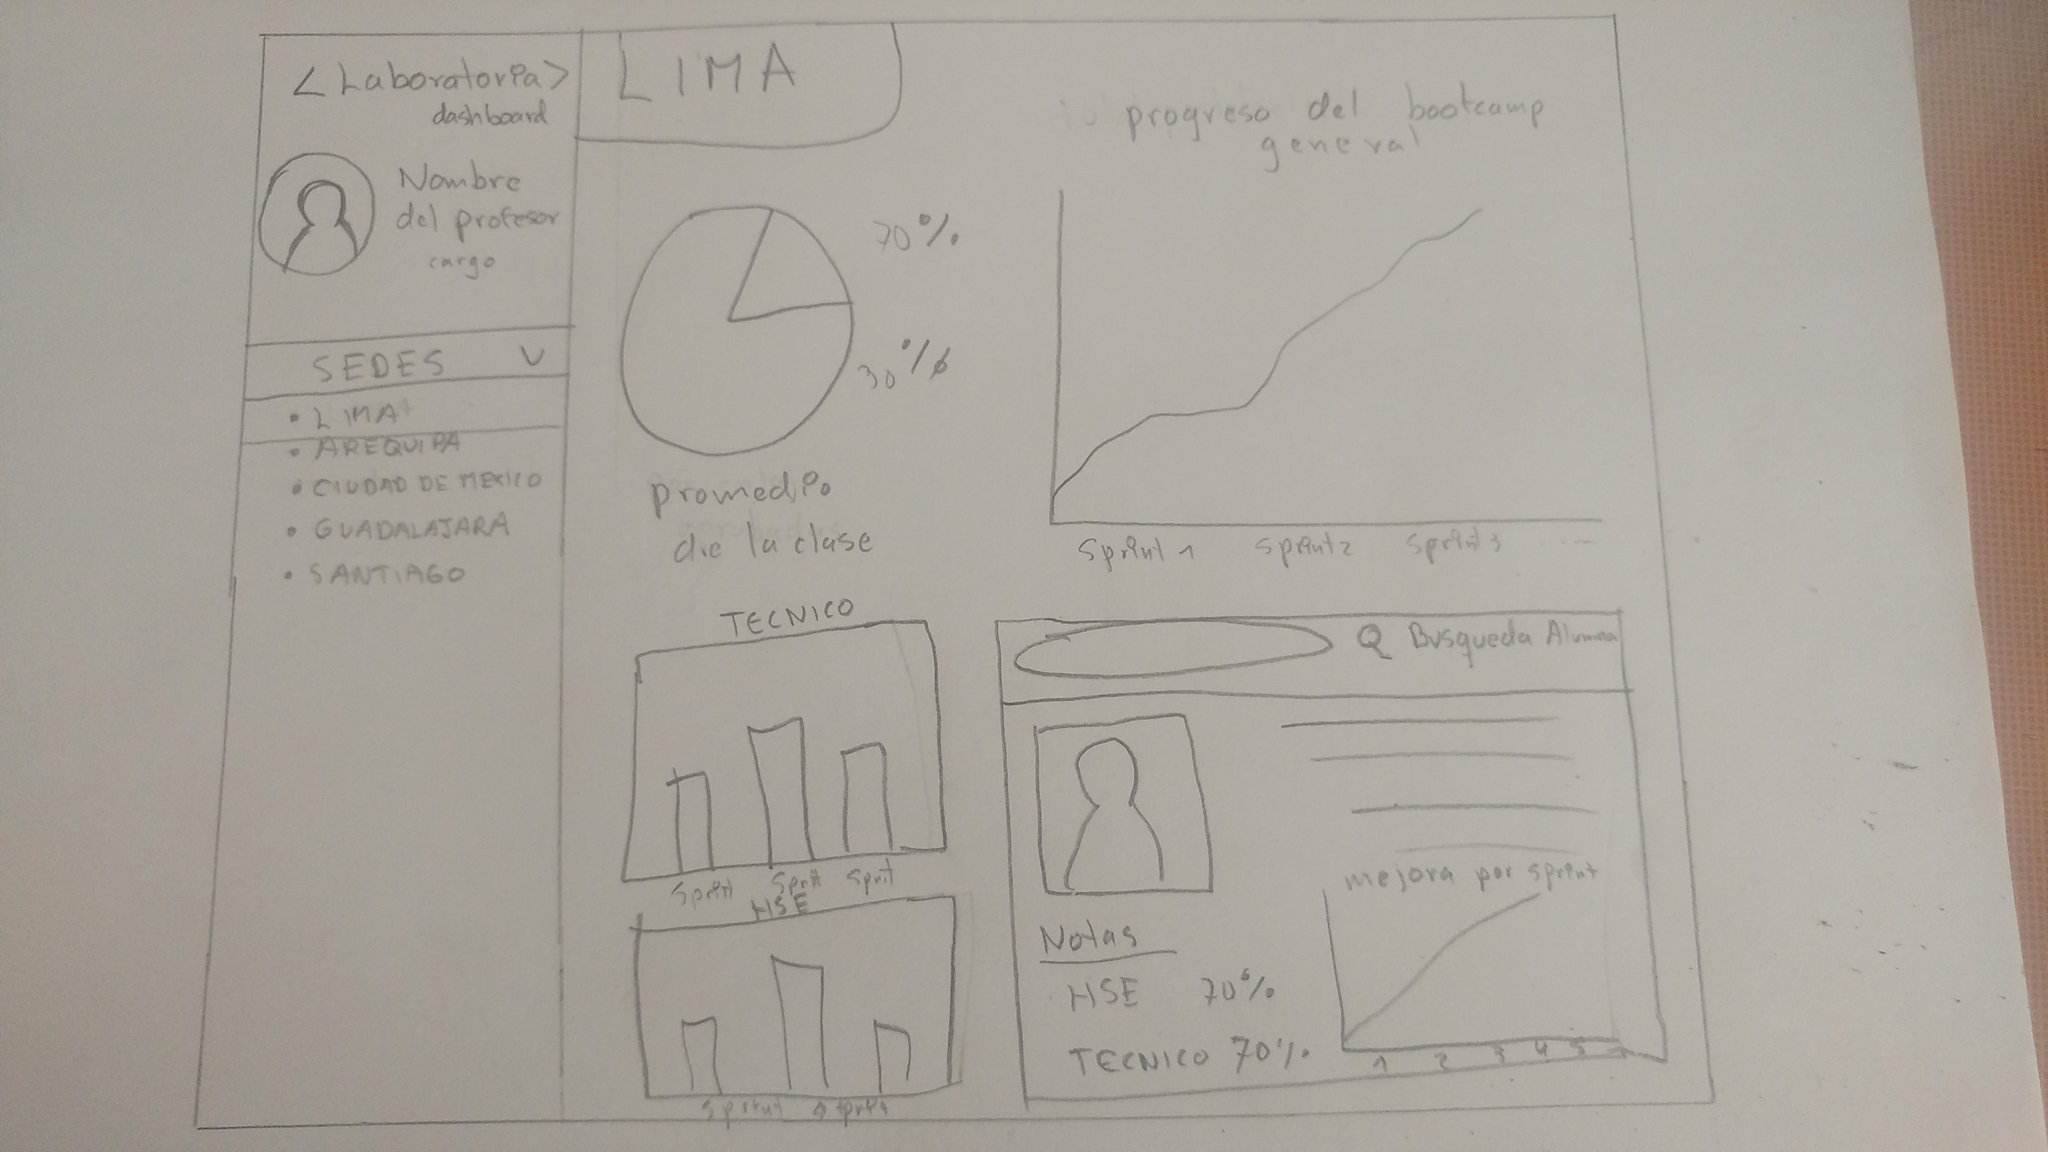 <Laboratoria>
dashboard
Nombre
del profesor
cargo
SEDES V
• LIMA
• AREQUIPA
• CIUDAD DE MEXICO
• GUADALAJARA
• SANTIAGO
LIMA
70%
30%
promedio
de la clase
progreso del bootcamp
general
Sprint 1 Sprint 2 Sprint 3 ...
TECNICO
Sprint Sprit Sprit
HSE
Sprint
Busqueda Alumna
Notas
HSE 70%
TECNICO 70%
mejora por sprint
1 2 3 4 5